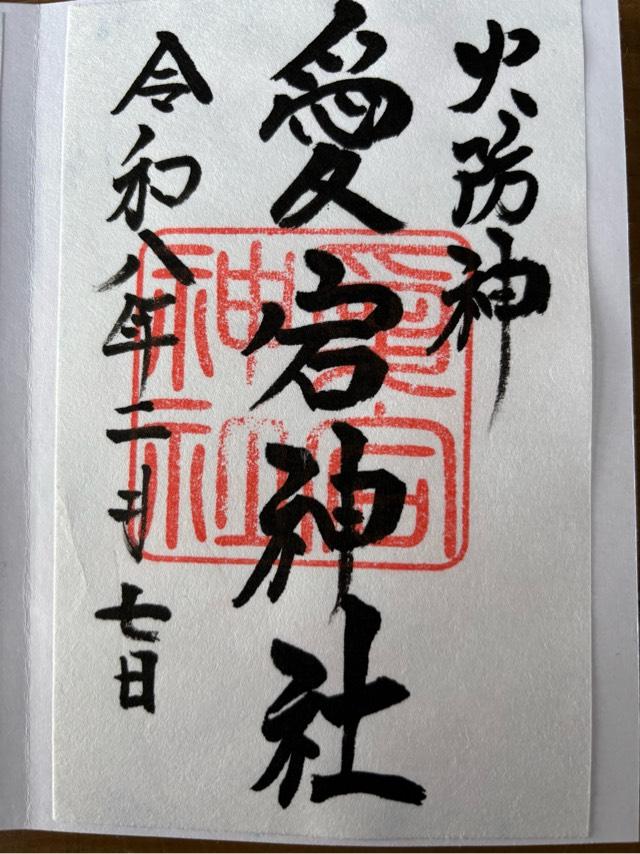 火防神
愛宕神社
令和八年二月七日
愛宕
神社